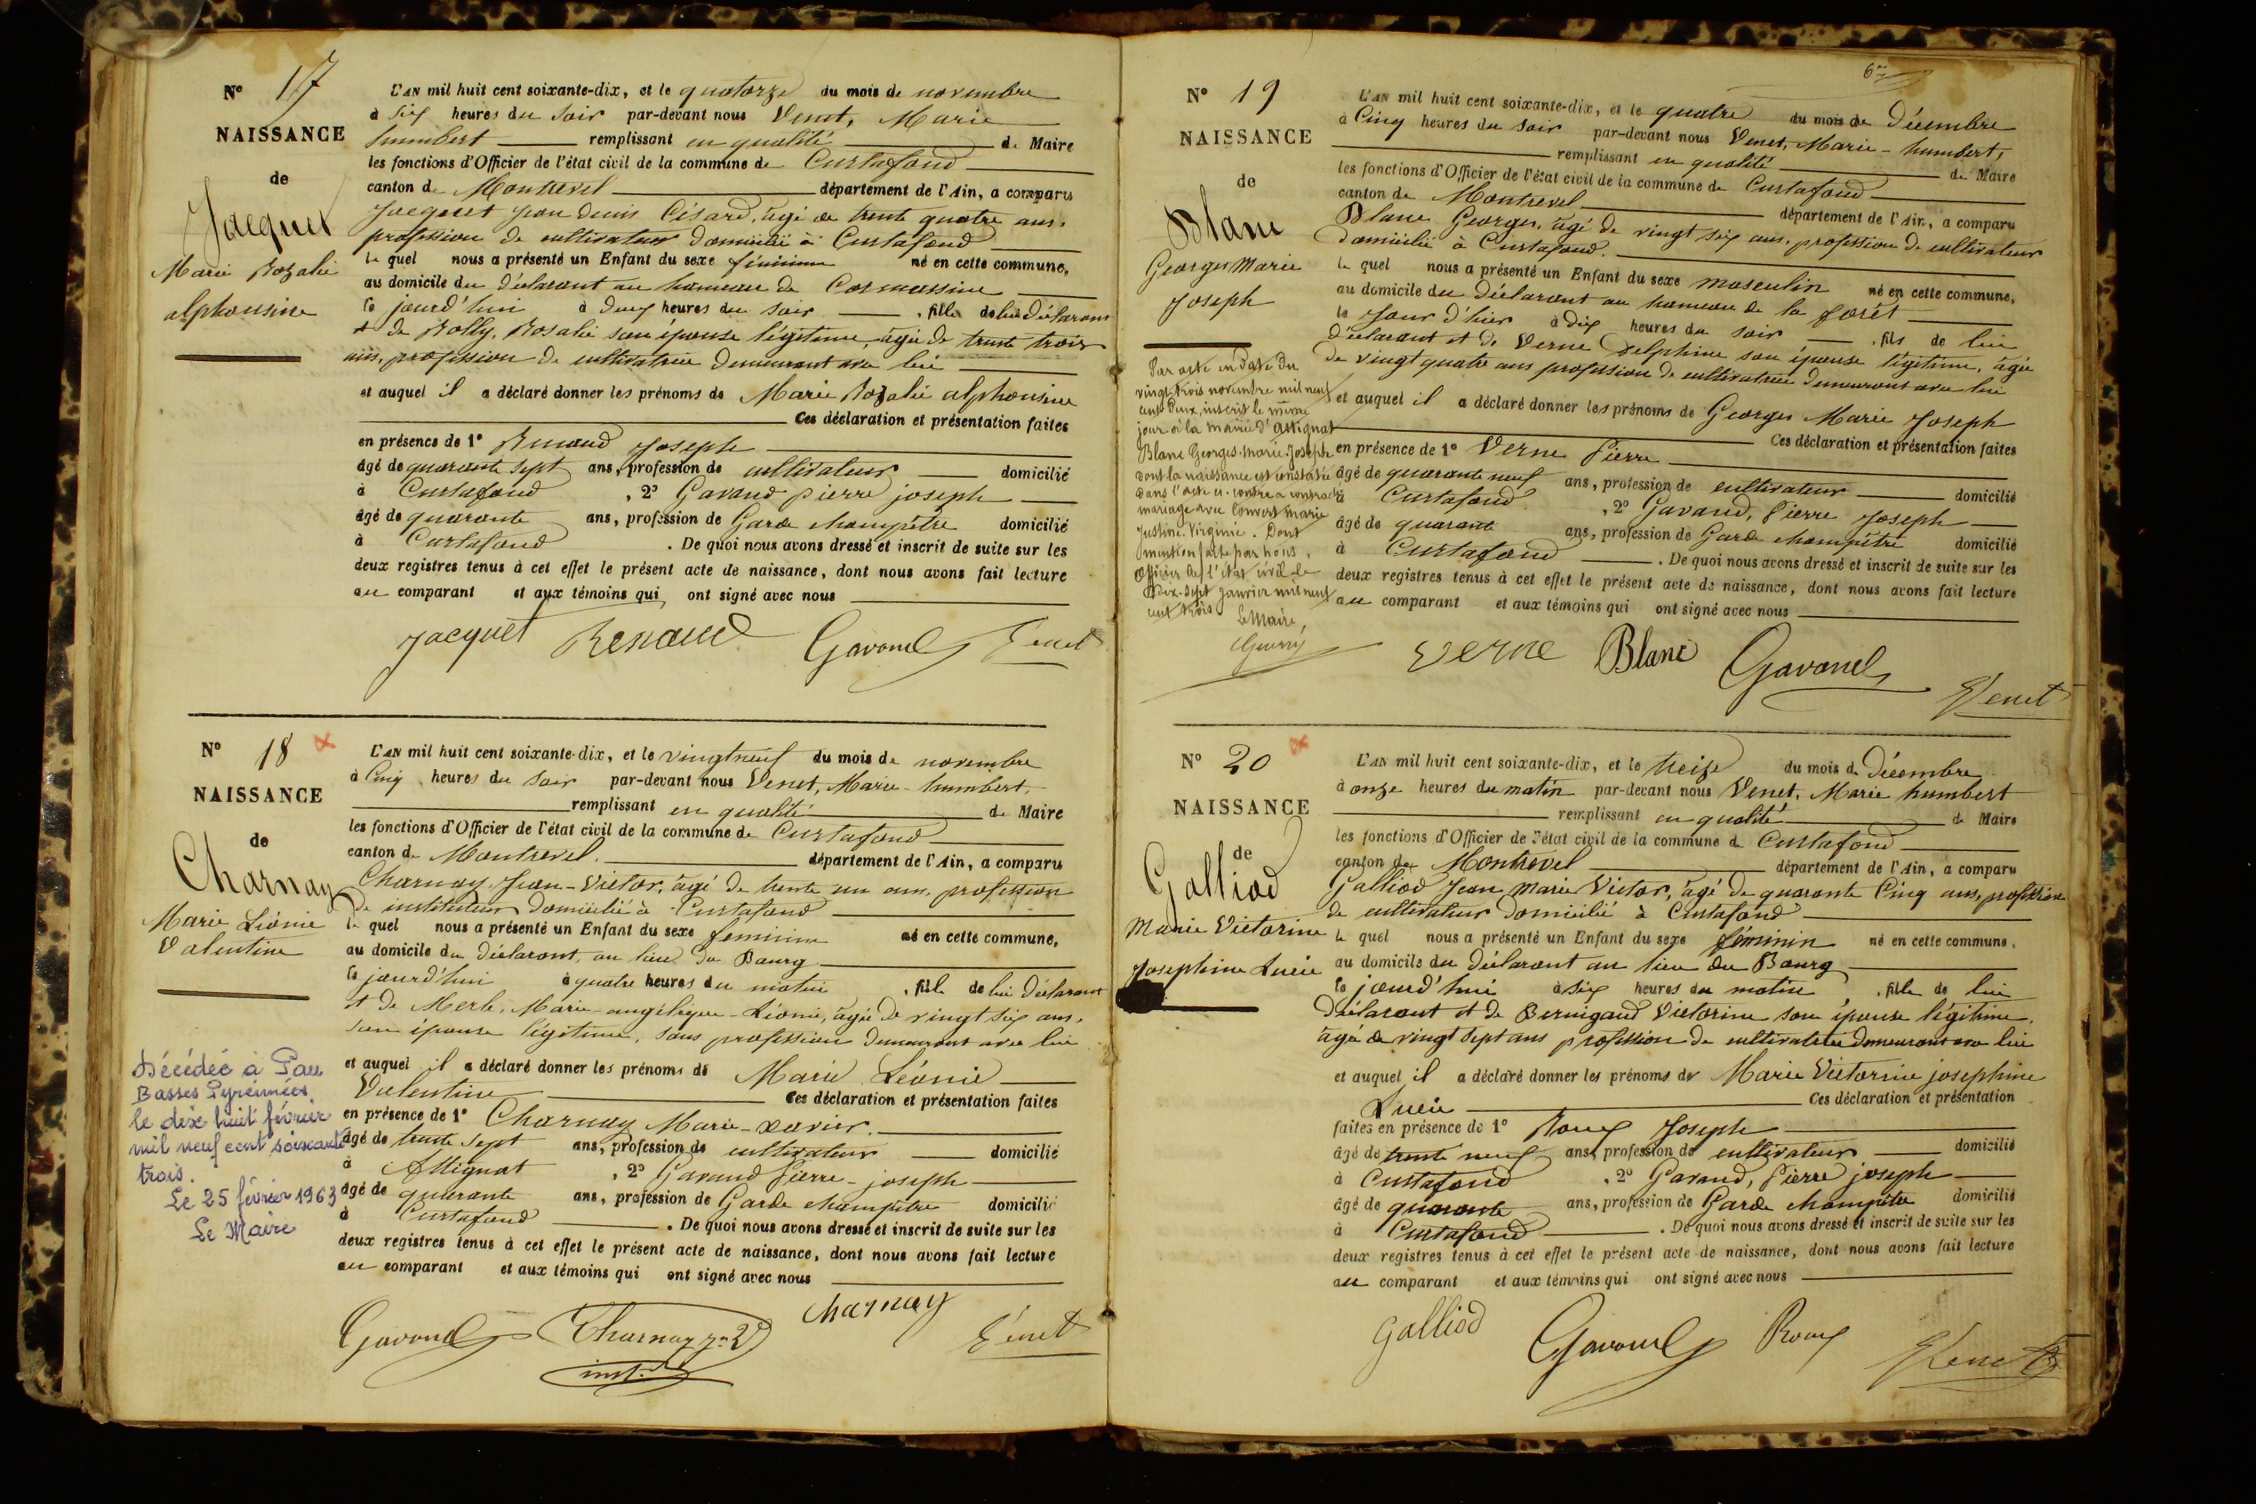 N° 17
NAISSANCE
de
Jacquet
Marie Rozalie
alphonsine
L'AN mil huit cent soixante-dix, et le quatorze du mois de novembre
à six heures du soir par-devant nous Venet, Marie
humbert remplissant en qualité de Maire
les fonctions d'Officier de l'état civil de la commune de Curtafond
canton de Montrevel département de l'Ain, a comparu
Jacquet Jean Denis Césard, âgé de trente quatre ans,
profession de cultivateur domicilié à Curtafond
le quel nous a présenté un Enfant du sexe féminin né en cette commune,
au domicile du déclarant au hameau de Cormassine
le jourd'hui à deux heures du soir, fille de lui déclarant
et de Bolly, Rosalie son épouse légitime, âgée de trente trois
ans, profession de cultivatrice demeurant avec lui
et auquel il a déclaré donner les prénoms de Marie Rozalie alphonsine
Ces déclaration et présentation faites
en présence de 1° Renaud Joseph
âgé de quarante sept ans, profession de cultivateur domicilié
à Curtafond, 2° Gavand pierre joseph
âgé de quarante ans, profession de Garde champêtre domicilié
à Curtafond. De quoi nous avons dressé et inscrit de suite sur les
deux registres tenus à cet effet le présent acte de naissance, dont nous avons fait lecture
au comparant et aux témoins qui ont signé avec nous
Jacquet Renaud Gavand Venet
N° 18
NAISSANCE
de
Charnay
Marie Léonie
Valentine
Décédée à Pau
Basses Pyrénnées
le dix huit février
mil neuf cent soixante
trois.
Le 25 février 1963
Le Maire
L'AN mil huit cent soixante-dix, et le vingt neuf du mois de novembre
à Cinq heures du soir par-devant nous Venet, Marie-humbert,
remplissant en qualité de Maire
les fonctions d'Officier de l'état civil de la commune de Curtafond
canton de Montrevel. département de l'Ain, a comparu
Charnay, Jean-Victor, âgé de trente un ans, profession
de instituteur domicilié à Curtafond
le quel nous a présenté un Enfant du sexe féminin né en cette commune,
au domicile du déclarant, au lieu du Bourg
le jourd'hui à quatre heures du matin, fille de lui déclarant
et de Merle, Marie-angélique-Léonie, âgée de vingt six ans,
son épouse légitime, sans profession demeurant avec lui
et auquel il a déclaré donner les prénoms de Marie Léonie
Valentine Ces déclaration et présentation faites
en présence de 1° Charnay Marie-xavier.
âgé de trente sept ans, profession de cultivateur domicilié
à Attignat, 2° Gavand Pierre-joseph
âgé de quarante ans, profession de Garde champêtre domicilié
à Curtafond. De quoi nous avons dressé et inscrit de suite sur les
deux registres tenus à cet effet le présent acte de naissance, dont nous avons fait lecture
au comparant et aux témoins qui ont signé avec nous
Charnay
Gavand Charnay Venet
inst.
N° 19
NAISSANCE
de
Blanc
Georges Marie
Joseph
Par acte en date du
vingt trois novembre mil neuf
cent deux, inscrit le même
jour à la mairie d'Attignat
Blanc Georges-Marie-Joseph
dont la naissance est constatée
dans l'acte ci-contre a contracté
mariage avec Convert Marie
Justine Virginie. Dont
mention faite par nous,
Officier de l'état civil le
dix-sept janvier mil neuf
cent trois
Le Maire,
L'AN mil huit cent soixante-dix, et le quatre du mois de Décembre
à Cinq heures du soir par-devant nous Venet, Marie-humbert,
remplissant en qualité de Maire
les fonctions d'Officier de l'état civil de la commune de Curtafond
canton de Montrevel département de l'Ain, a comparu
Blanc Georges, âgé de vingt six ans, profession de cultivateur
domicilié à Curtafond.
le quel nous a présenté un Enfant du sexe masculin né en cette commune,
au domicile du déclarant au hameau de la forêt
le jour d'hier à dix heures du soir, fils de lui
déclarant et de Verne Delphine son épouse légitime, âgée
de vingt quatre ans profession de cultivatrice demeurant avec lui
et auquel il a déclaré donner les prénoms de Georges Marie Joseph
Ces déclaration et présentation faites
en présence de 1° Verne Pierre
âgé de quarante neuf ans, profession de cultivateur domicilié
à Curtafond, 2° Gavand, Pierre Joseph
âgé de quarante ans, profession de Garde champêtre domicilié
à Curtafond. De quoi nous avons dressé et inscrit de suite sur les
deux registres tenus à cet effet le présent acte de naissance, dont nous avons fait lecture
au comparant et aux témoins qui ont signé avec nous
Verne Blanc Gavand Venet
N° 20
NAISSANCE
de
Galliod
Marie Victorine
Josephine Lucie
L'AN mil huit cent soixante-dix, et le treize du mois de Décembre
à onze heures du matin par-devant nous Venet, Marie humbert
remplissant en qualité de Maire
les fonctions d'Officier de l'état civil de la commune de Curtafond
canton de Montrevel département de l'Ain, a comparu
Galliod Jean Marie Victor, âgé de quarante Cinq ans, profession
de cultivateur domicilié à Curtafond
le quel nous a présenté un Enfant du sexe féminin né en cette commune,
au domicile du déclarant au lieu du Bourg
le jourd'hui à six heures du matin, fille de lui
déclarant et de Bernigaud Victorine son épouse légitime,
âgée de vingt sept ans profession de cultivatrice demeurant avec lui
et auquel il a déclaré donner les prénoms de Marie Victorine josephine
Lucie Ces déclaration et présentation
faites en présence de 1° Roux Joseph
âgé de trente neuf ans, profession de cultivateur domicilié
à Curtafond, 2° Gavand, Pierre joseph
âgé de quarante ans, profession de Garde champêtre domicilié
à Curtafond. De quoi nous avons dressé et inscrit de suite sur les
deux registres tenus à cet effet le présent acte de naissance, dont nous avons fait lecture
au comparant et aux témoins qui ont signé avec nous
Galliod Gavand Roux Venet